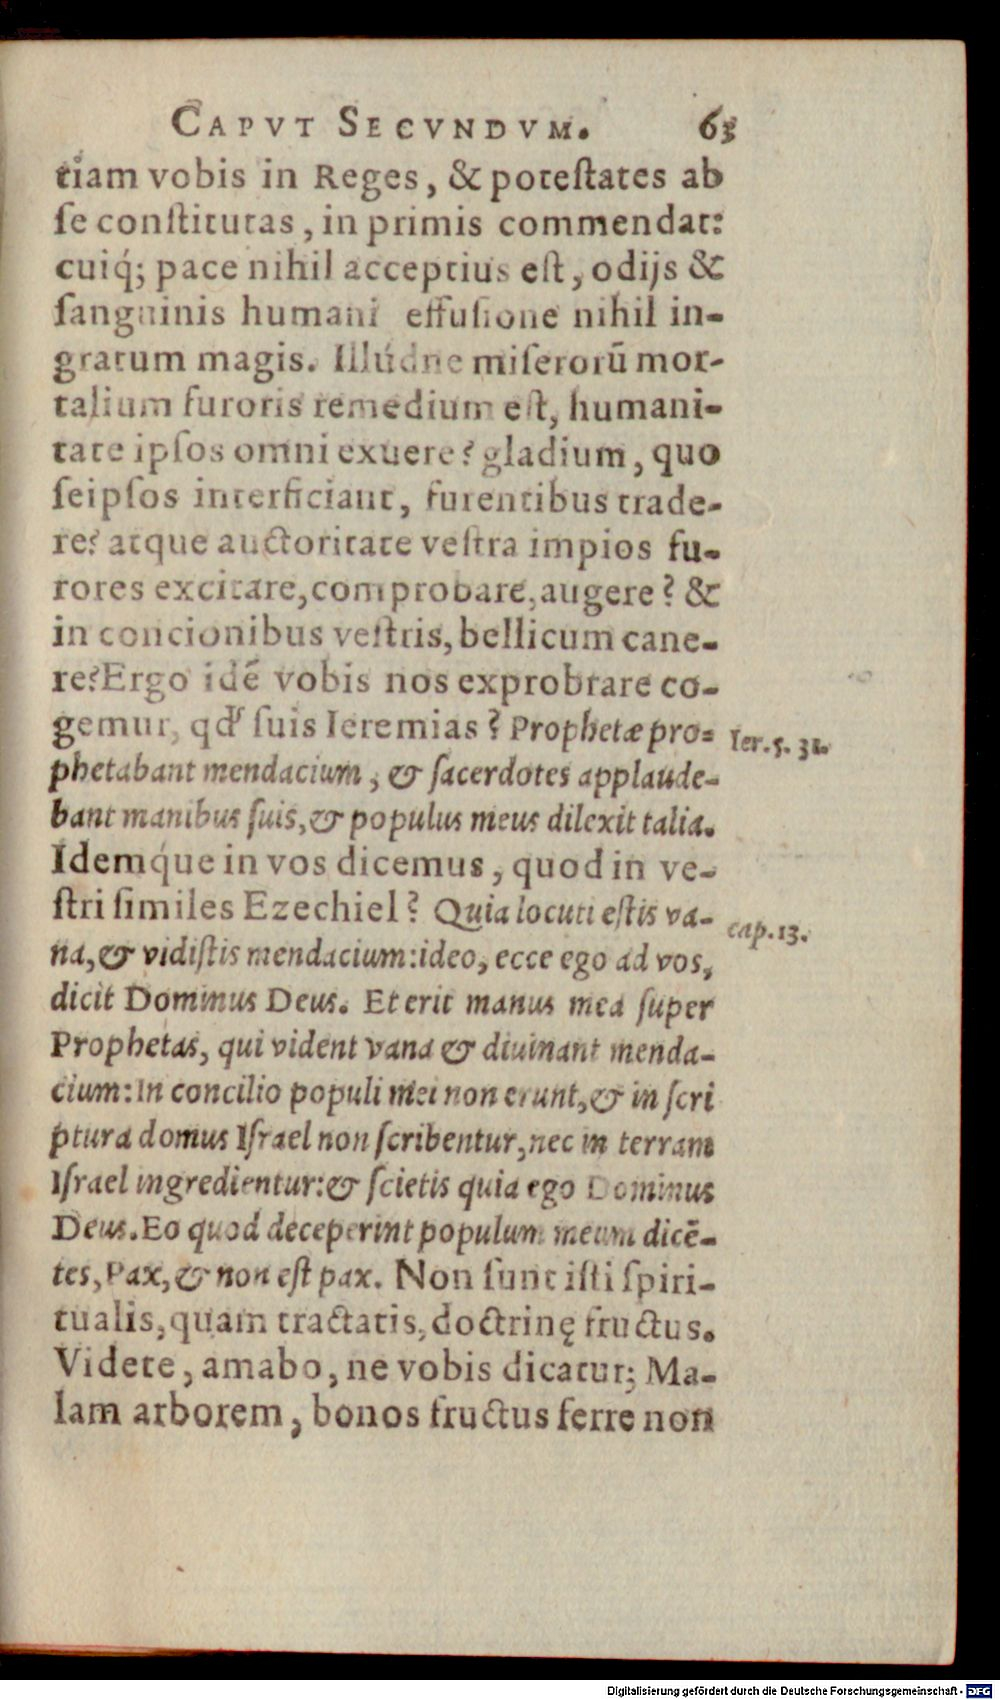 CAPVT SECVNDVM. 63
tiam vobis in Reges, & potestates ab
se constitutas, in primis commendat:
cuiq́; pace nihil acceptius est, odijs &
sanguinis humani effusione nihil in-
gratum magis. Illúdne miserorũ mor-
talium furoris remedium est, humani-
tate ipsos omni exuere? gladium, quo
seipsos interficiant, furentibus trade-
re? atque auctoritate vestra impios fu-
rores excitare, comprobare, augere? &
in concionibus vestris, bellicum cane-
re? Ergo idẽ vobis nos exprobrare co-
gemur, qd' suis Ieremias? Prophetæ pro-
Ier. 5. 31.
phetabant mendacium, & sacerdotes applaude-
bant manibus suis, & populus meus dilexit talia.
Idemq́ue in vos dicemus, quod in ve-
stri similes Ezechiel? Quia locuti estis va-
cap. 13.
na, & vidistis mendacium: ideo, ecce ego ad vos,
dicit Dominus Deus. Et erit manus mea super
Prophetas, qui vident vana & diuinant menda-
cium: In concilio populi mei non erunt, & in scri
ptura domus Israel non scribentur, nec in terram
Israel ingredientur: & scietis quia ego Dominus
Deus. Eo quod deceperint populum meum dicẽ-
tes, Pax, & non est pax. Non sunt isti spiri-
tualis, quam tractatis, doctrinę fructus.
Videte, amabo, ne vobis dicatur; Ma-
lam arborem, bonos fructus ferre non
Digitalisierung gefördert durch die Deutsche Forschungsgemeinschaft - DFG